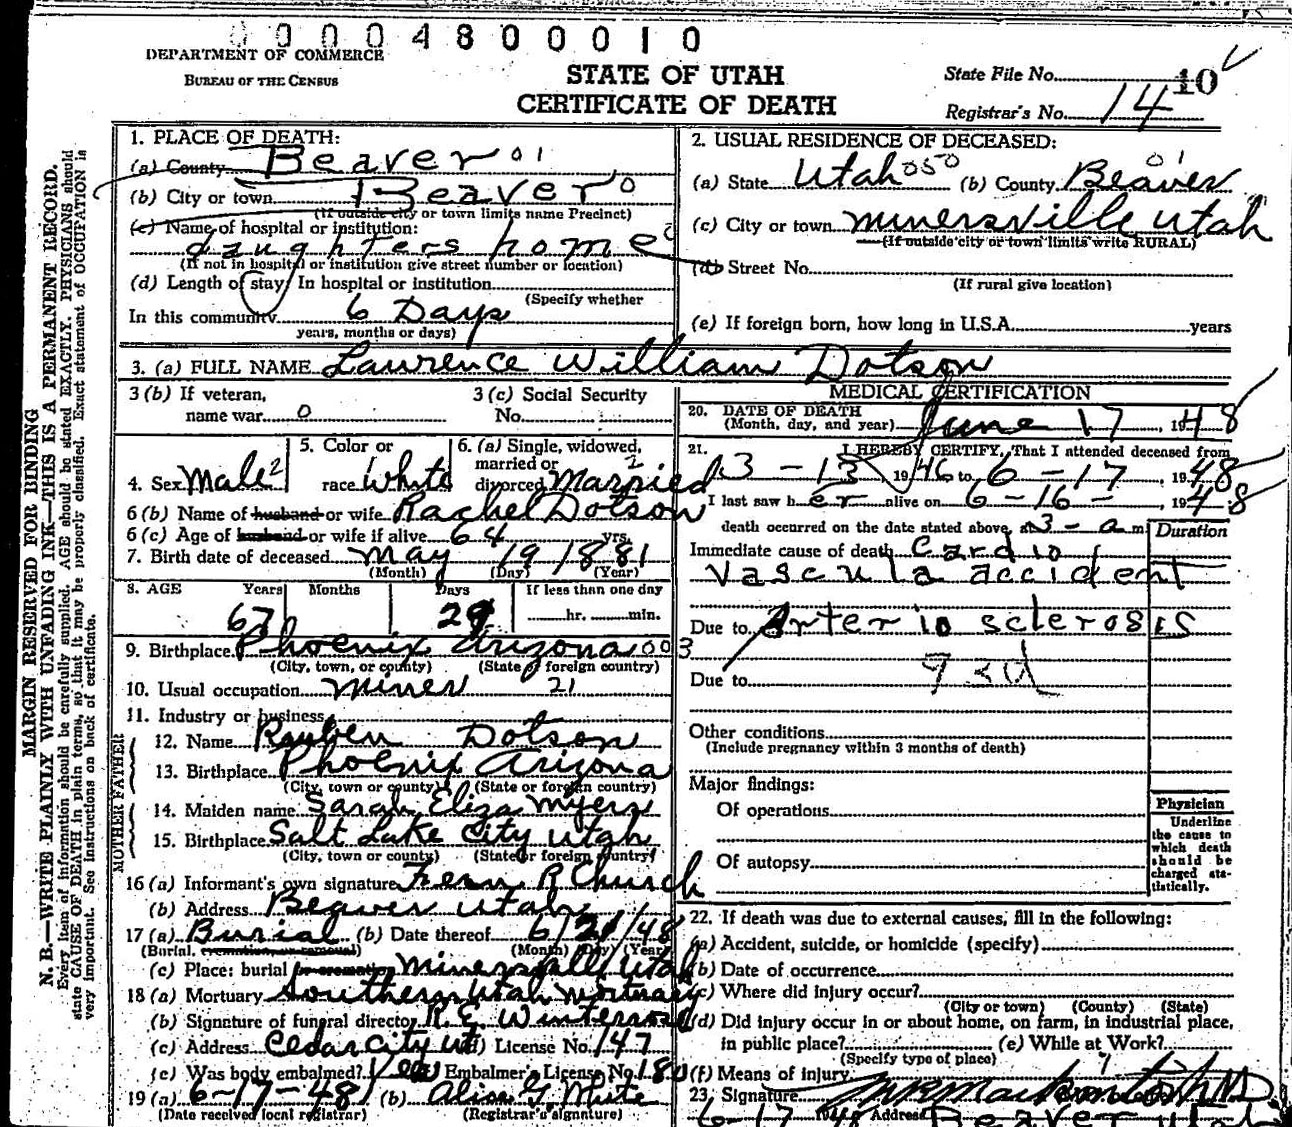 00004800010
DEPARTMENT OF COMMERCE
BUREAU OF THE CENSUS
STATE OF UTAH
CERTIFICATE OF DEATH
State File No. 10
Registrar's No. 14
MARGIN RESERVED FOR BINDING
N. B.—WRITE PLAINLY WITH UNFADING INK—THIS IS A PERMANENT RECORD.
Every item of information should be carefully supplied. AGE should be stated EXACTLY. PHYSICIANS should
state CAUSE OF DEATH in plain terms, so that it may be properly classified. Exact statement of OCCUPATION is
very important. See instructions on back of certificate.
1. PLACE OF DEATH:
(a) County Beaver 01
(b) City or town Beaver 0
(If outside city or town limits name Precinct)
(c) Name of hospital or institution:
daughters home
(If not in hospital or institution give street number or location)
(d) Length of stay: In hospital or institution
(Specify whether
In this community 6 Days
years, months or days)
2. USUAL RESIDENCE OF DECEASED:
(a) State Utah 050 (b) County Beaver 01
(c) City or town Minersville Utah
(If outside city or town limits write RURAL)
(d) Street No.
(If rural give location)
(e) If foreign born, how long in U.S.A. years
3. (a) FULL NAME Lawrence William Dotson
3 (b) If veteran,
name war 0
3 (c) Social Security
No.
4. Sex Male 2
5. Color or
race White
6. (a) Single, widowed,
married or
divorced Married 2
6 (b) Name of husband or wife Rachel Dotson
6 (c) Age of husband or wife if alive 64 yrs.
7. Birth date of deceased May 19 1881
(Month) (Day) (Year)
8. AGE Years Months Days If less than one day
67 29 hr. min.
9. Birthplace Phoenix Arizona 003
(City, town, or county) (State or foreign country)
10. Usual occupation Miner 21
11. Industry or business
FATHER
12. Name Reuben Dotson
13. Birthplace Phoenix Arizona
(City, town or county) (State or foreign country)
MOTHER
14. Maiden name Sarah Eliza Myers
15. Birthplace Salt Lake City Utah
(City, town or county) (State or foreign country)
16 (a) Informant's own signature Fern R Church
(b) Address Beaver Utah
17 (a) Burial (b) Date thereof 6/21/48
(Burial, cremation, or removal) (Month) (Day) (Year)
(c) Place: burial or cremation Minersville Utah
18 (a) Mortuary Southern Utah Mortuary
(b) Signature of funeral director R. E. Winterrose
(c) Address Cedar City Ut (d) License No. 147
(e) Was body embalmed? Yes Embalmer's License No. 180
19 (a) 6-17-48 (b) Alice G. White
(Date received local registrar) (Registrar's signature)
MEDICAL CERTIFICATION
20. DATE OF DEATH
(Month, day, and year) June 17, 1948
21. I HEREBY CERTIFY, That I attended deceased from
3-13 1946 to 6-17, 1948
I last saw h er alive on 6-16-, 1948
death occurred on the date stated above, at 3-a m.
Duration
Immediate cause of death Cardio
Vascula accident
Due to Arterio sclerosis
Due to
Other conditions
(Include pregnancy within 3 months of death)
Major findings:
Of operations
Of autopsy
Physician
Underline
the cause to
which death
should be
charged sta-
tistically.
22. If death was due to external causes, fill in the following:
(a) Accident, suicide, or homicide (specify)
(b) Date of occurrence
(c) Where did injury occur?
(City or town) (County) (State)
(d) Did injury occur in or about home, on farm, in industrial place,
in public place? (e) While at Work?
(Specify type of place)
(f) Means of injury
23. Signature MD
6-17 1948 Address Beaver Utah